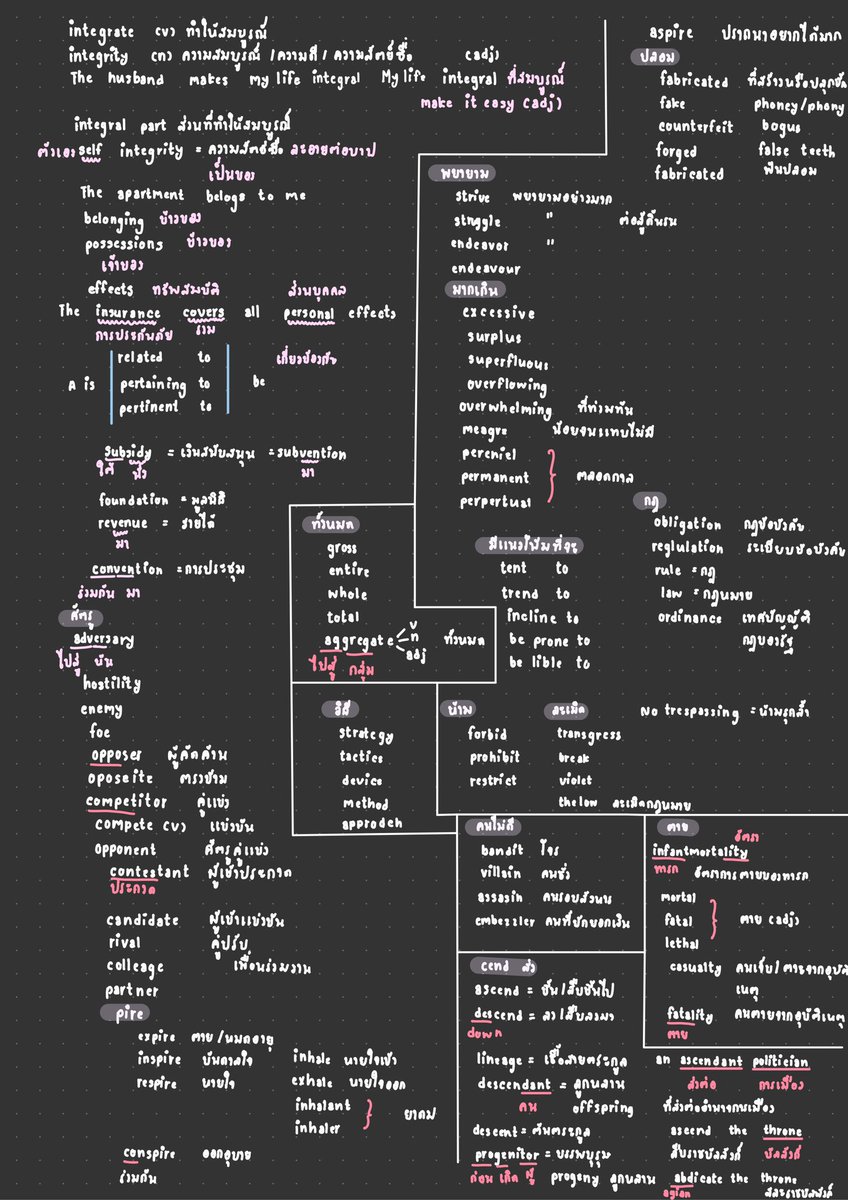 integrate (v) ทำให้สมบูรณ์
integrity (n) ความสมบูรณ์ /ความดี / ความสัตย์ซื่อ (adj)
The husband makes my life integral My life integral ที่สมบูรณ์
make it easy (adj)
integral part ส่วนที่ทำให้สมบูรณ์
ตัวเอง self integrity = ความสัตย์ซื่อ ละอายต่อบาป
เป็นของ
The apartment belogs to me
belonging ข้าวของ
possessions ข้าวของ
เจ้าของ
effects ทรัพสมบัติ ส่วนบุคคล
The insurance covers all personal effects
การประกันภัย รวม
related to เกี่ยวข้องกับ
A is pertaining to be
pertinent to
subsidy = เงินสนับสนุน = subvention
ใต้ นั่ง มา
foundation = มูลนิธิ
revenue = รายได้
มา
convention = การประชุม
ร่วมกัน มา
ศัตรู
adversary
ไปสู่ ผัน
hostility
enemy
foe
opposer ผู้คัดค้าน
oposeite ตรงข้าม
competitor คู่แข่ง
compete (v) แข่งขัน
opponent ศัตรูคู่แข่ง
contestant ผู้เข้าประกวด
ประกวด
candidate ผู้เข้าแข่งขัน
rival คู่ปรับ
colleage เพื่อนร่วมงาน
partner
pire
expire ตาย /หมดอายุ
inspire บันดาลใจ
respire หายใจ
inhale หายใจเข้า
exhale หายใจออก
inhalant ยาดม
inhaler
conspire ออกอุบาย
ร่วมกัน
aspire ปรารถนาอยากได้มาก
ปลอม
fabricated ที่สร้างหรือปลุกปั้น
fake phoney/phony
counterfeit bogus
forged false teeth
fabricated ฟันปลอม
พยายาม
strive พยายามอย่างมาก
stnggle " ต่อสู้ดิ้นรน
endeavor "
endeavour
มากเกิน
excessive
surplus
superfluous
overflowing
overwhelming ที่ท่วมท้น
meagre น้อยจนแทบไม่มี
pereniel
permanent ตลอดกาล
perpertual
กฎ
obligation กฎข้อบังคับ
reglulation ระเบียบข้อบังคับ
rule = กฎ
law = กฎหมาย
ordinance เทศบัญญัติ
กฎของรัฐ
ทั้งหมด
gross
entire
whole
total
aggregate v n adj ทั้งหมด
ไปสู่ กลุ่ม
มีแนวโน้มที่จะ
tent to
trend to
incline to
be prone to
be lible to
วิธี
strategy
tactics
device
method
approdch
ห้าม
forbid
prohibit
restrict
ละเมิด
transgress
break
violet
the low ละเมิดกฎหมาย
No trespassing = ห้ามรุกล้ำ
คนไม่ดี
bandit โจร
villain คนชั่ว
assasin คนรอบสังหาร
embezzler คนที่ยักยอกเงิน
ตาย
อัตรา
infantmortality
ทารก อัตราการตายของทารก
mortal
fatal ตาย (adj)
lethal
casualty คนเจ็บ/ตายจากอุบัติ
เหตุ
fatality คนตายจากอุบัติเหตุ
ตาย
cend
ascend = ขึ้น /สืบขึ้นไป
descend = ลง /สืบลงมา
down
lineage = เชื้อสายตระกูล
descendant = ลูกหลาน
คน offspring
descent = ต้นตระกูล
progenitor = บรรพบุรุษ
ก่อน เกิด ผู้ progeny ลูกหลาน
an ascendant politician
ส่งต่อ การเมือง
ที่ส่งต่ออำนาจการเมือง
ascend the throne
สืบราชบัลลังก์ บัลลังก์
abdicate the throne
สละราชบัลลังก์